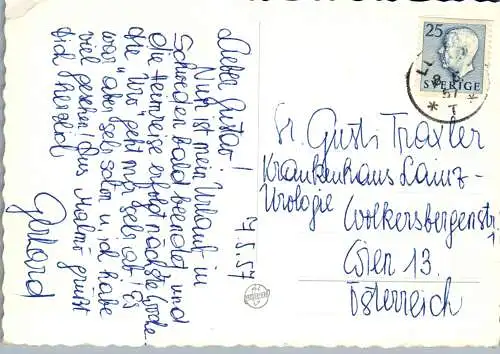 Lieber Gustav!
Nun ist mein Urlaub in
Schweden bald beendet und
die Heimreise erfolgt nächste Woche.
die Uhr geht mir sehr ab! Es
war aber sehr schön u. ich habe
viel gesehen! Aus Malmö grüßt
Dich herzlich
Gerhard
7.5.57
25
SVERIGE
Gustl Traxler
Krankenhaus Lainz-
Urologie
Wolkersbergenstr 1
Wien 13.
Österreich